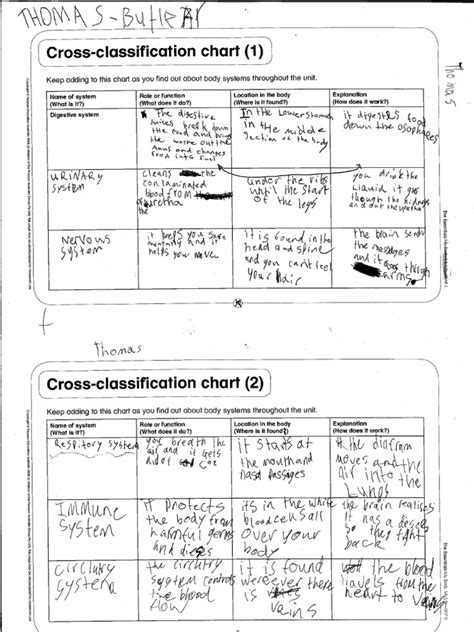 THOMAS-Butler
Thomas
Cross-classification chart (1)
Keep adding to this chart as you find out about body systems throughout the unit.
Name of system
(What is it?)
Role or function
(What does it do?)
Location in the body
(Where is it found?)
Explanation
(How does it work?)
Digestive system
The digestive
juices break down
the food and brings
the waste out the
Anus and changes
from into fuel
In the Lower stomach
in the middle
section of the body
it digests food
down the
URINARY
system
cleans the
contaminated
blood from
uretha
under the ribs
until the start
of the legs
you drink the
Liquid it goes
though the kidneys
and out the uretha
Nervous
system
it keeps you safe
mentally and it
helps your nerve
it is found in the
head and spine
and you can't feel
your Hair
the brain sends
the messages
and it goes though
f
Thomas
Cross-classification chart (2)
Keep adding to this chart as you find out about body systems throughout the unit.
Name of system
(What is it?)
Role or function
(What does it do?)
Location in the body
(Where is it found?)
Explanation
(How does it work?)
Respitory system
you breath the
air and it gets
Rid of Co2
it starts at
the mouth and
nasl passiges
the
moves and the
air into the
Lungs
Immune
system
it Protects
the body from
harmful germs
and
its in the white
blood cens all
over your
body
the brain realises
it has a
so they fight
back
circlutry
system
the circlutry
system controls
the blood
flow
it is found
wereever there
is
veins
the blood
travels from the
heart to veins